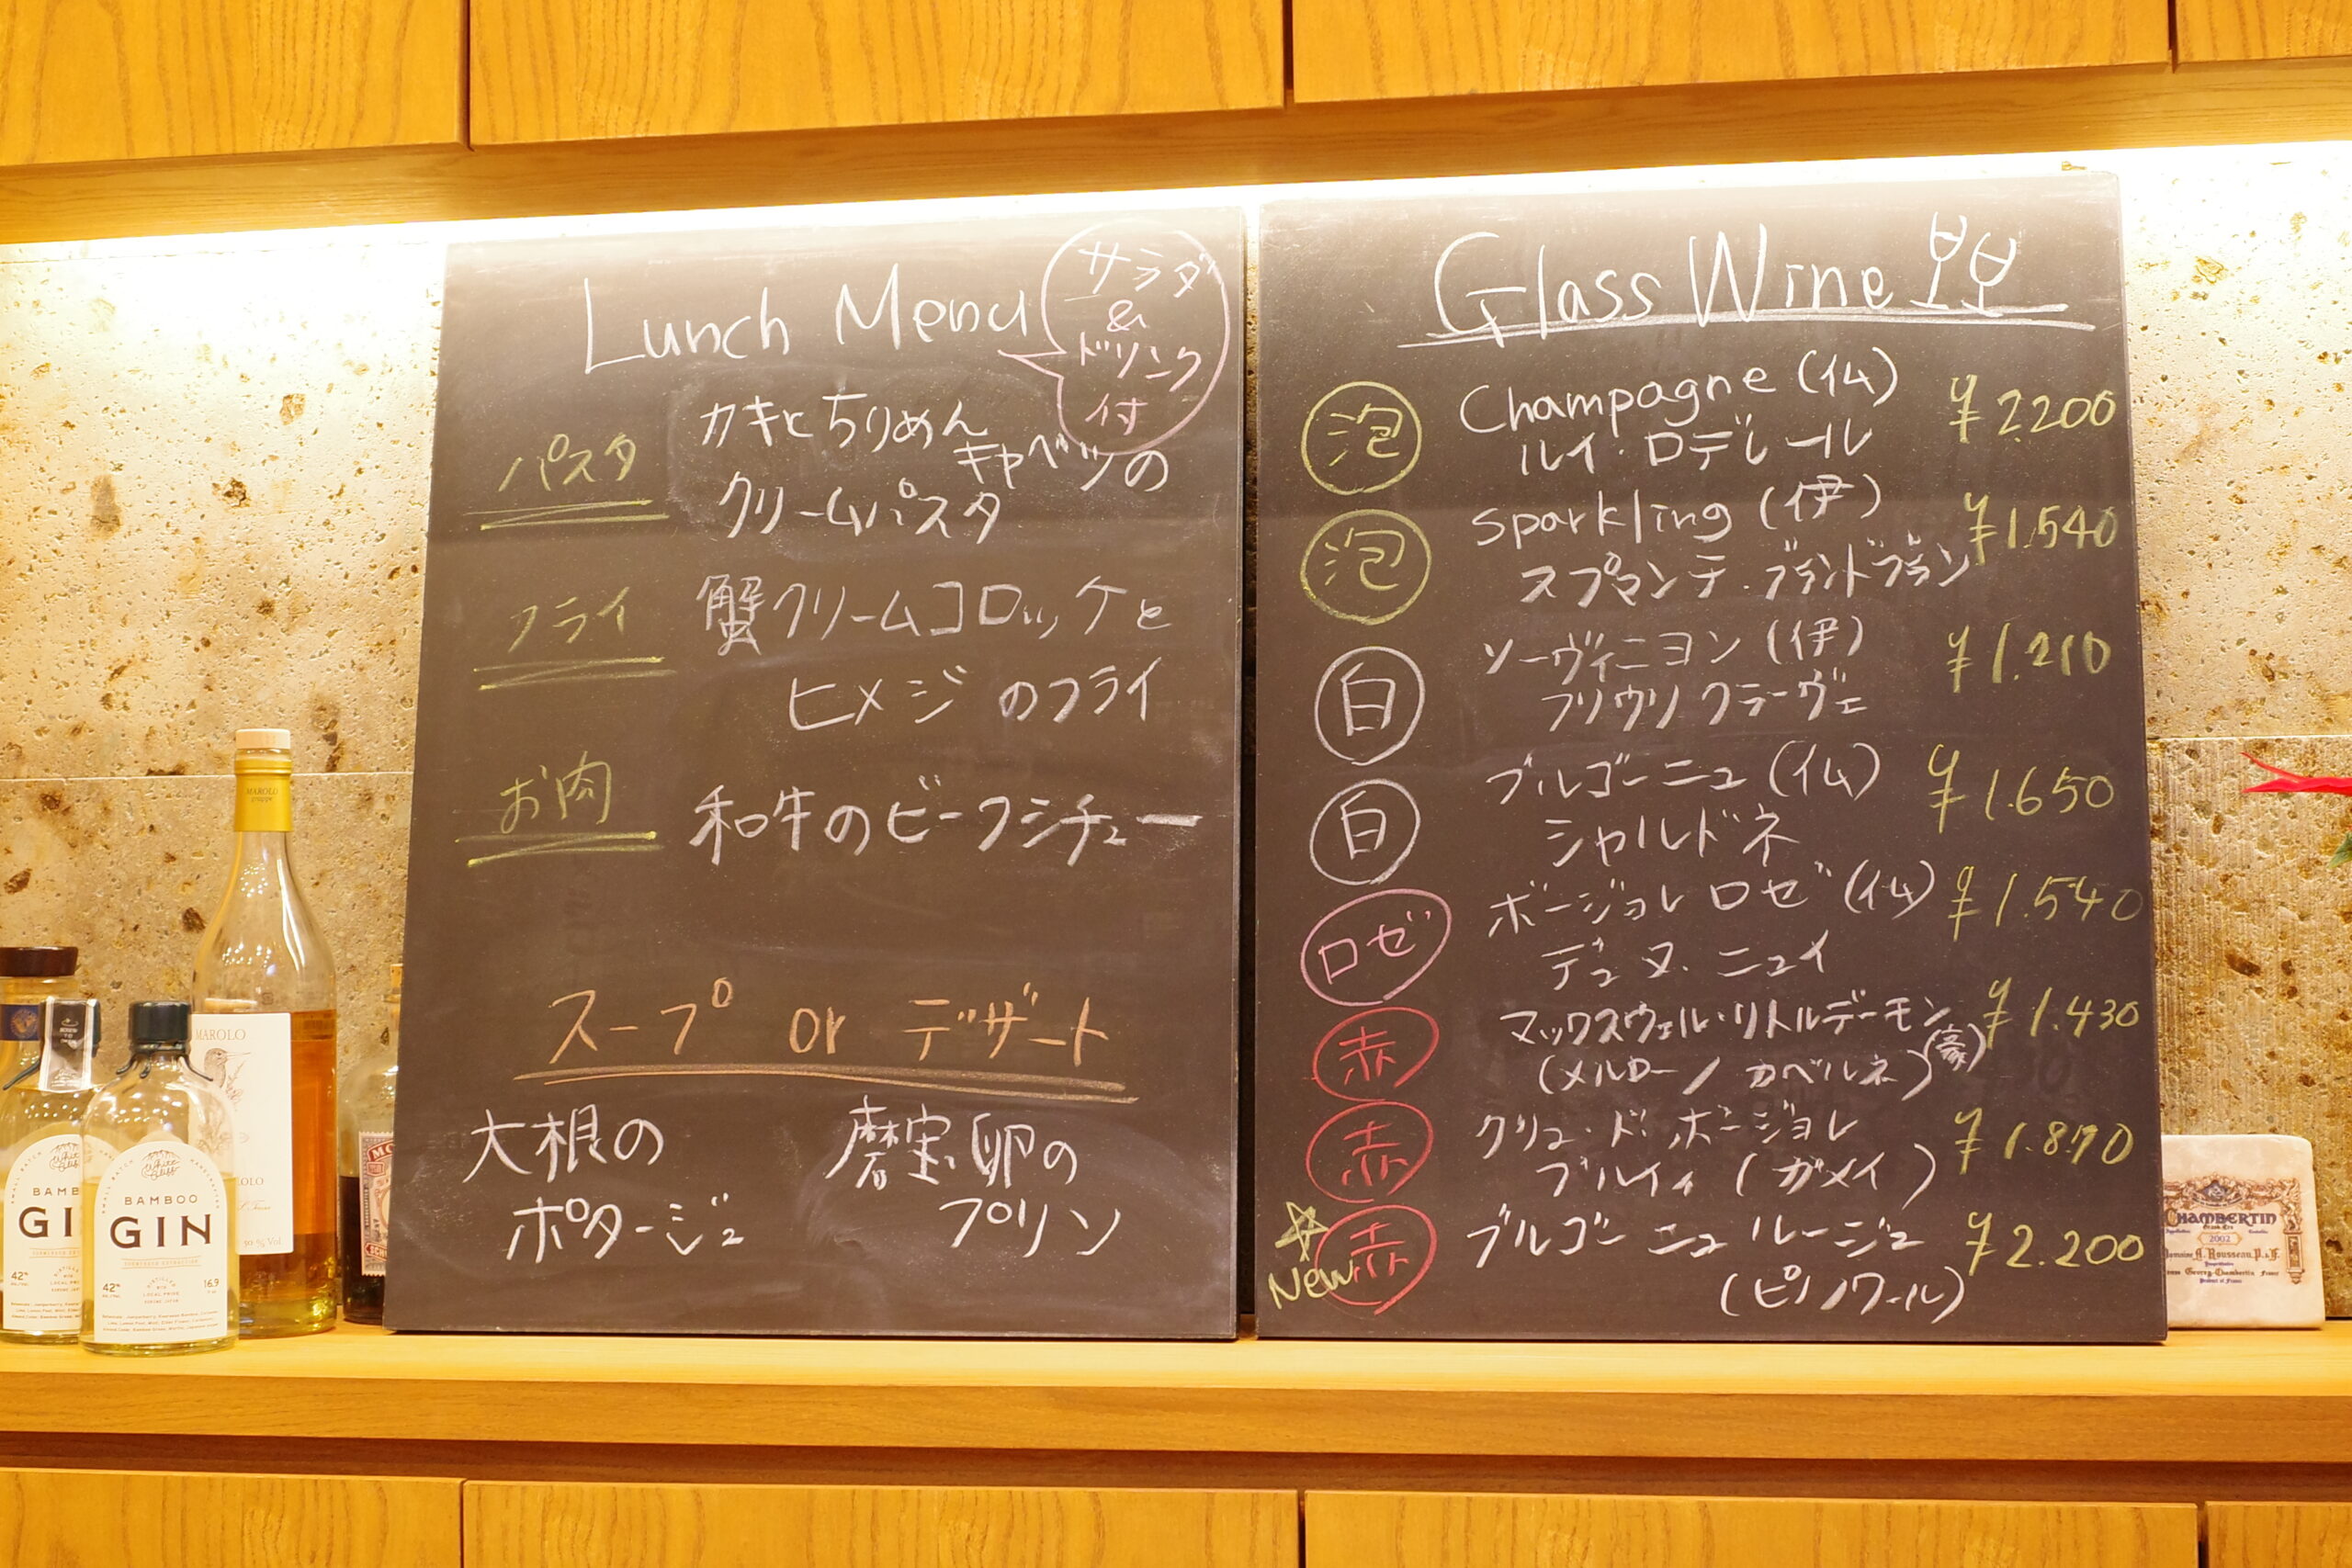 Lunch Menu
サラダ
&
ドリンク
付
パスタ
カキとちりめんキャベツの
クリームパスタ
フライ
蟹クリームコロッケと
ヒメジのフライ
お肉
和牛のビーフシチュー
スープ or デザート
大根の
ポタージュ
磨宝卵の
プリン
Glass Wine
泡 Champagne (仏) ¥2200
ルイ・ロデレール
泡 Sparkling (伊) ¥1.540
スプマンテ・ブランドブラン
白 ソーヴィニヨン (伊) ¥1.210
フリウリ クラーヴェ
白 ブルゴーニュ (仏) ¥1.650
シャルドネ
ロゼ ボージョレ ロゼ (仏) ¥1.540
デュヌ・ニュイ
赤 マックスウェル・リトルデーモン ¥1.430
(メルロー/カベルネ) (豪)
赤 クリュ・ド・ボージョレ ¥1.870
ブルイィ (ガメイ)
New 赤 ブルゴーニュ ルージュ ¥2.200
(ピノノワール)
MAROLO
MAROLO
BAMBOO
GIN
42%
BAMBOO
GIN
42%
16.9
CHAMBERTIN
2002